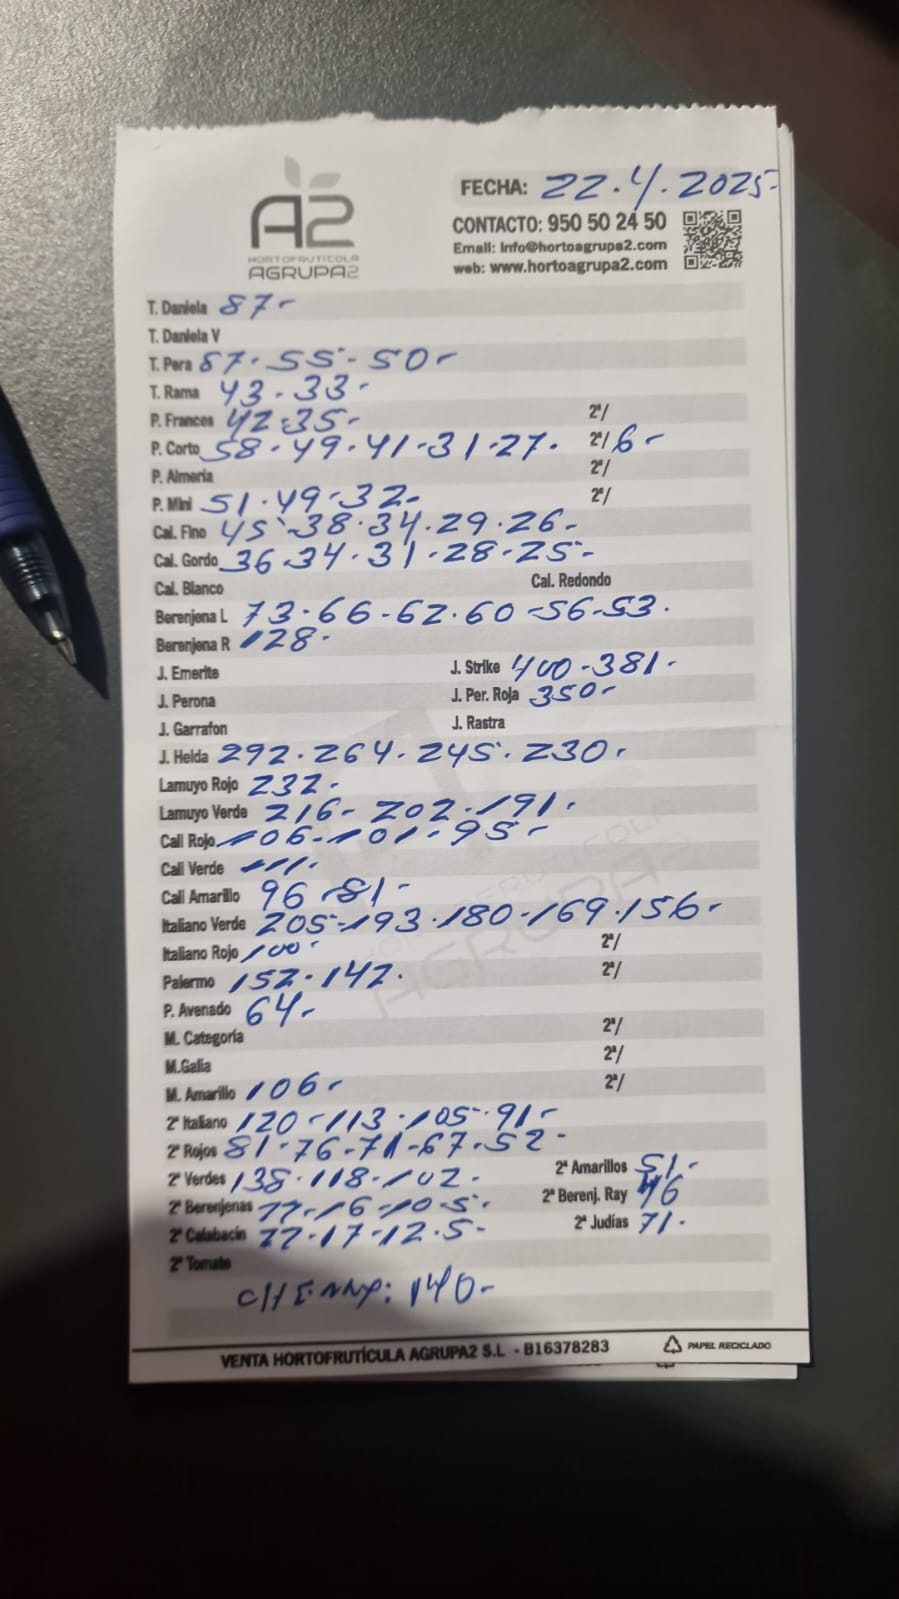 A2
HORTOFRUTICOLA
AGRUPA2
FECHA: 22.4.2025-
CONTACTO: 950 50 24 50
Email: info@hortoagrupa2.com
web: www.hortoagrupa2.com
T. Daniela 87-
T. Daniela V
T. Pera 57-55-50-
T. Rama 43-33-
P. Frances 42-35- 2ª/
P. Corto 58-49-41-31-27- 2ª/6-
P. Almeria 2ª/
P. Mini 51-49-32- 2ª/
Cal. Fino 45-38-34-29-26-
Cal. Gordo 36-34-31-28-25-
Cal. Blanco Cal. Redondo
Berenjena L 73-66-62-60-56-53-
Berenjena R 128-
J. Emerite J. Strike 400-381-
J. Perona J. Per. Roja 350-
J. Garrafon J. Rastra
J. Helda 292-264-245-230-
Lamuyo Rojo 232-
Lamuyo Verde 216-202-191-
Cali Rojo 106-101-95-
Cali Verde 111-
Cali Amarillo 96-81-
Italiano Verde 205-193-180-169-156-
Italiano Rojo 100- 2ª/
Palermo 152-142- 2ª/
P. Avenado 64-
M. Categoría 2ª/
M.Galia 2ª/
M. Amarillo 106- 2ª/
2ª Italiano 120-113-105-91-
2ª Rojos 81-76-71-67-52-
2ª Verdes 138-118-102- 2ª Amarillos 51-
2ª Berenjenas 22-16-10-5- 2ª Berenj. Ray 46
2ª Calabacín 22-17-12-5- 2ª Judías 71-
2ª Tomate
140-
VENTA HORTOFRUTÍCULA AGRUPA2 S.L - B16378283 PAPEL RECICLADO